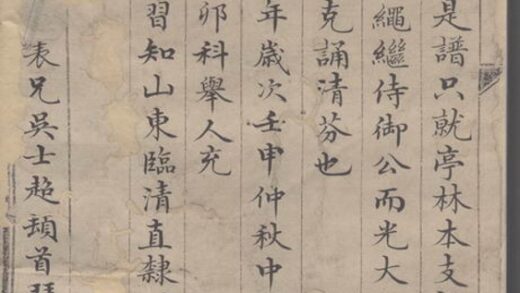 是譜只就亭林本支
繩繼侍御公而光大
克誦清芬也
年歲次壬申仲秋中
卯科舉人充
習知山東臨清直隸
表兄吳士超頓首拜